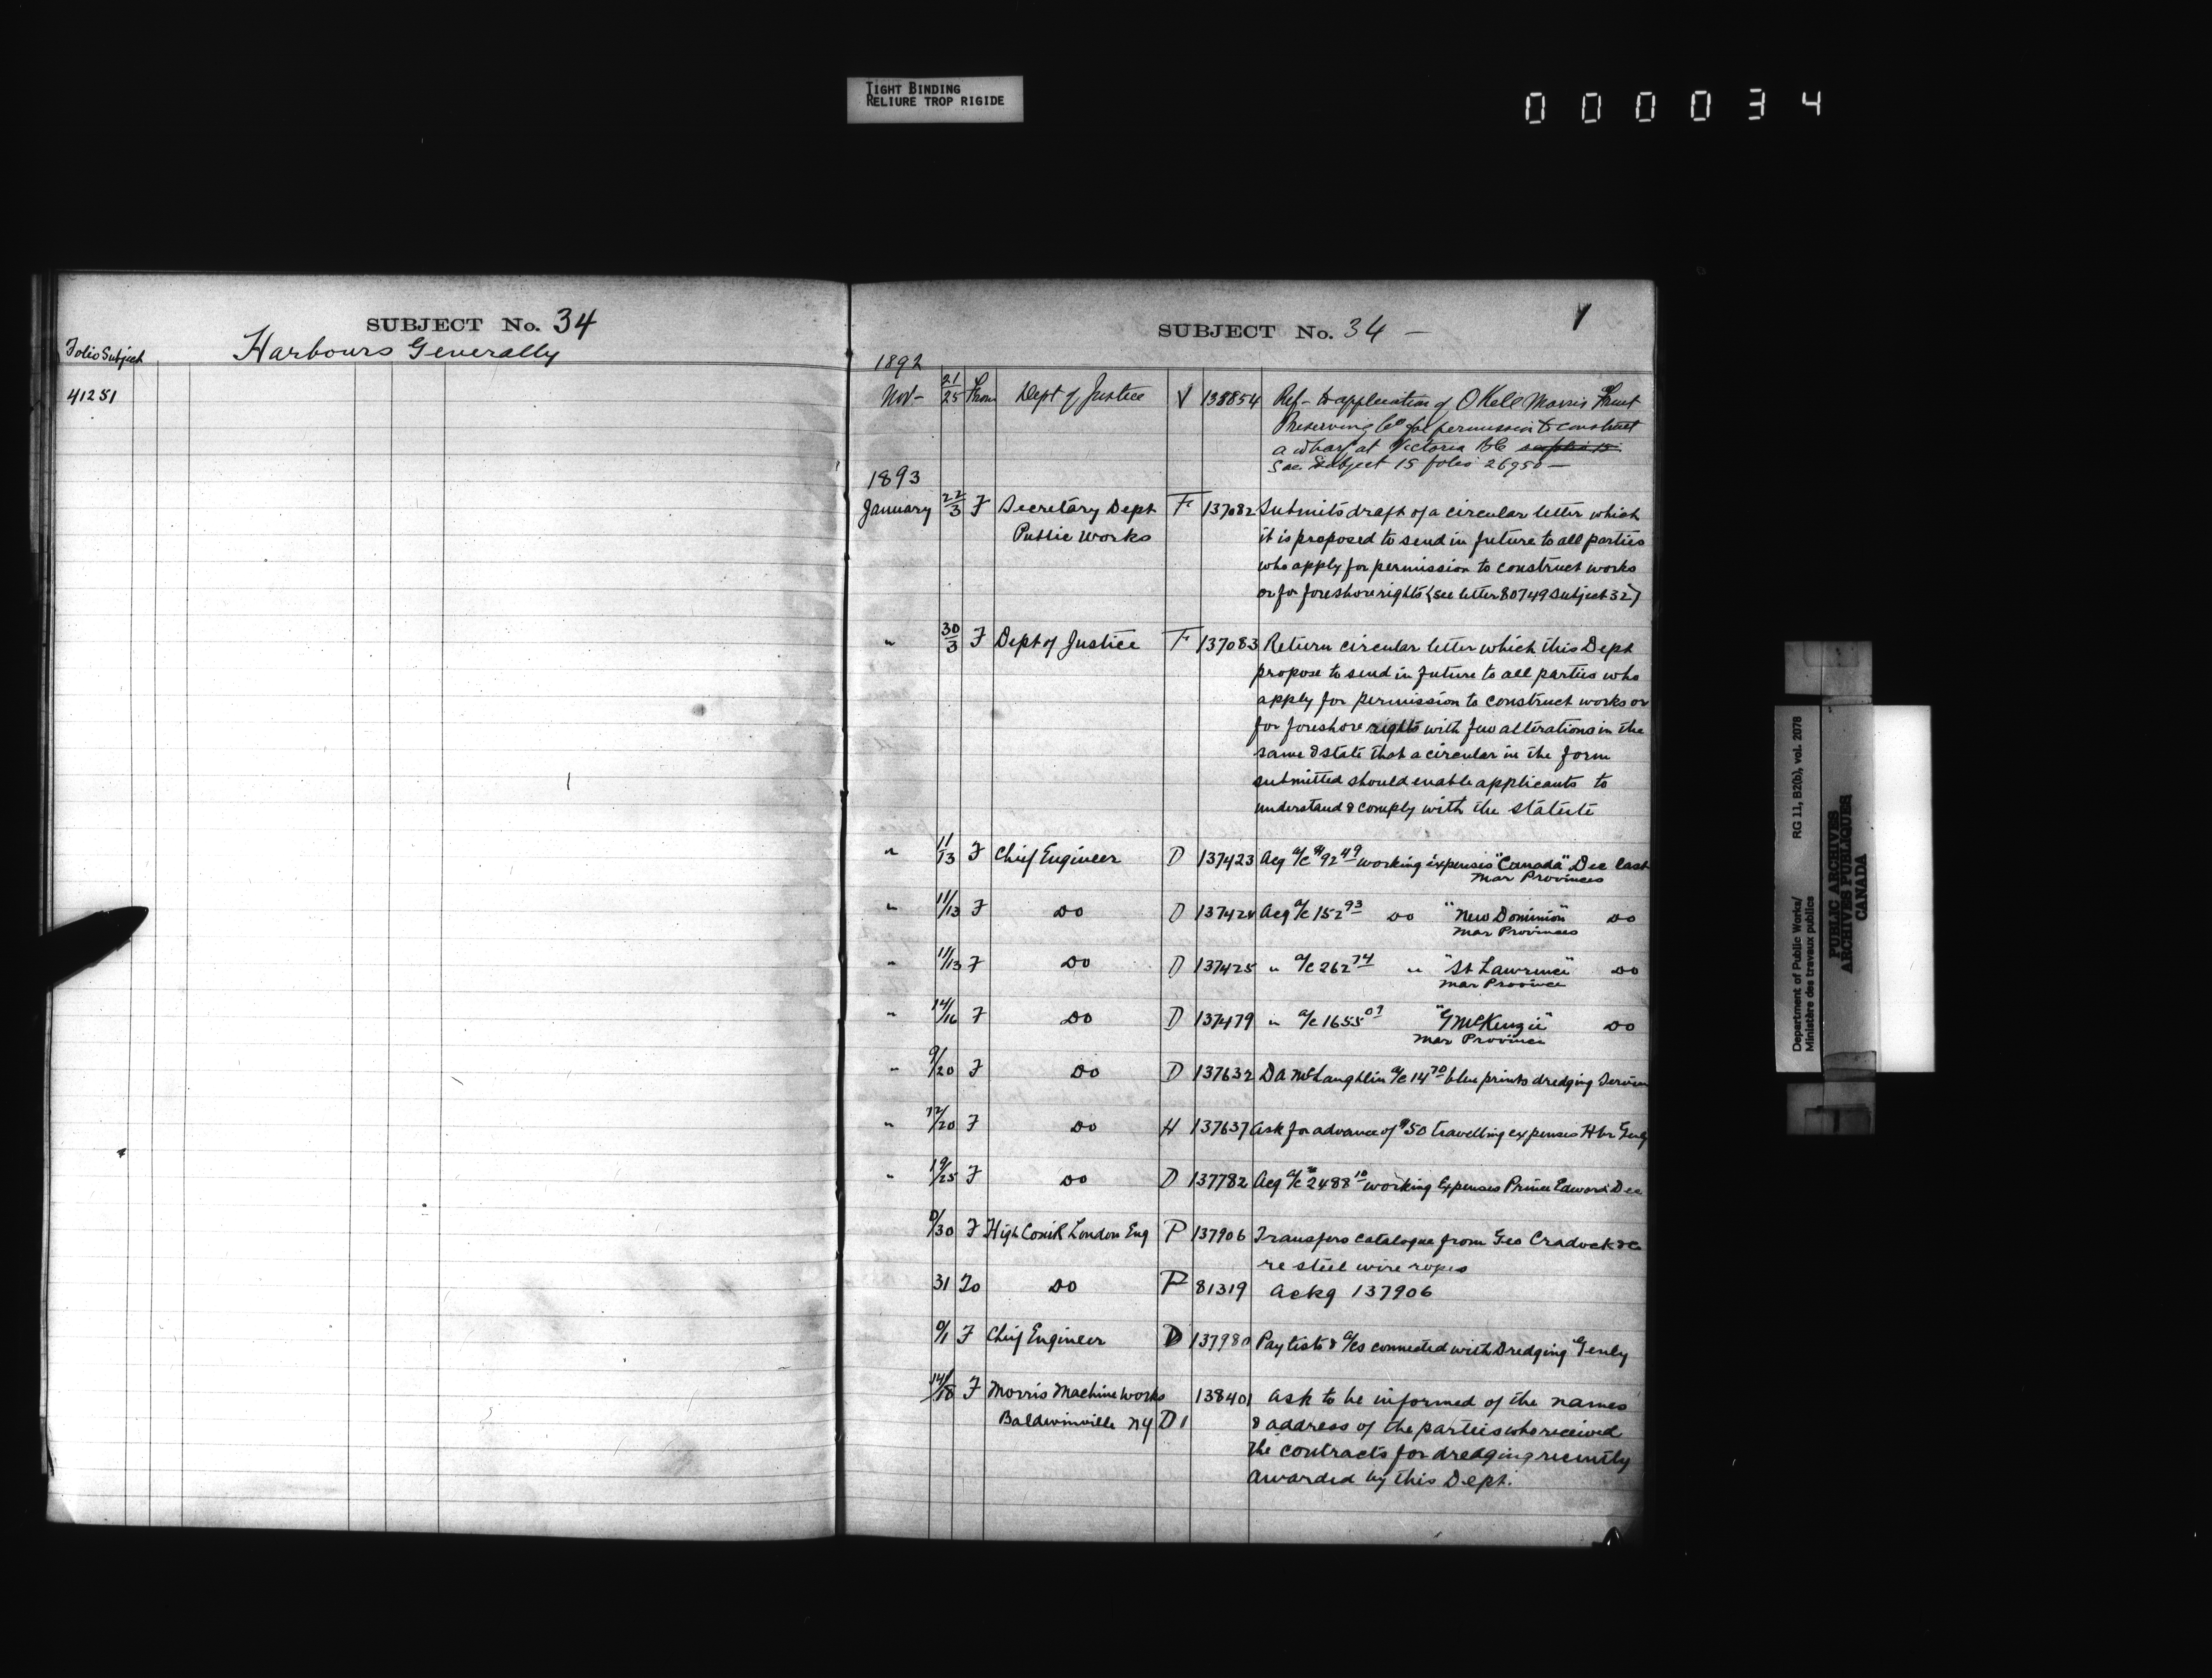 TIGHT BINDING
RELIURE TROP RIGIDE
000034
SUBJECT No. 34
Folio Subject
Harbours Generally
41251
SUBJECT No. 34 —
1
1892
Nov - 21/25 From Dept of Justice V 138854 Ref - to application of O Kell Morris Fruit
Preserving Co for permission to construct
a wharf at Victoria BC
See Subject 15 folio 26950 —
1893
January 22/3 F Secretary Dept F 137082 Submits draft of a circular letter which
Public Works it is proposed to send in future to all parties
who apply for permission to construct works
or for foreshore rights (see letter 80749 Subject 32)
" 30/3 F Dept of Justice F 137083 Return circular letter which this Dept
propose to send in future to all parties who
apply for permission to construct works or
for foreshore rights with few alterations in the
same & state that a circular in the form
submitted should enable applicants to
understand & comply with the statute
" 11/13 F Chief Engineer D 137423 Acq a/c $92 49 working expenses "Canada" Dec last
Mar Provinces
" 11/13 F Do D 137424 Acq a/c 152 93 Do "New Dominion" Do
Mar Provinces
" 11/13 F Do D 137425 " a/c 262 74 " "St Lawrence" Do
Mar Province
" 14/16 F Do D 137479 " a/c 1655 07 "G McKenzie" Do
Mar Province
" 9/20 F Do D 137632 D A McLaughlin a/c 14 70 blue prints dredging Service
" 12/20 F Do H 137637 Ask for advance of $50 travelling expenses Hbr Genly
" 19/25 F Do D 137782 Acq a/c 2488 10 working Expenses Prince Edward Dec
0/30 F High Comr London Eng P 137906 Transfers catalogue from Geo Cradock & Co
re steel wire ropes
31 To Do P 81319 Ackg 137906
0/1 F Chief Engineer D 137980 Paylists & a/cs connected with Dredging Genly
14/18 F Morris Machine Works 138401 Ask to be informed of the names
Baldwinville NY D1 & address of the parties who received
the contracts for dredging recently
awarded by this Dept.
Department of Public Works/ RG 11, B2(b), vol. 2078
Ministère des travaux publics
PUBLIC ARCHIVES
ARCHIVES PUBLIQUES
CANADA